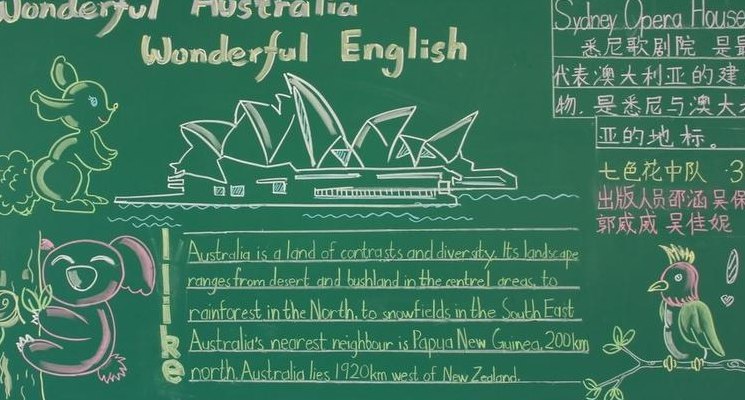 Wonderful Australia
Wonderful English
Sydney Opera House
悉尼歌剧院 是最
代表澳大利亚的建
物, 是悉尼与澳大
亚的地标。
七色花中队 ·3
出版人员邵涵吴保
郭威威 吴佳妮
I like
Australia is a land of contrasts and diversity. Its landscape
ranges from desert and bushland in the centrel areas, to
rainforest in the North, to snowfields in the South East
Australia's nearest neighbour is Papua New Guinea, 200km
north. Australia lies 1920km west of New Zealand.